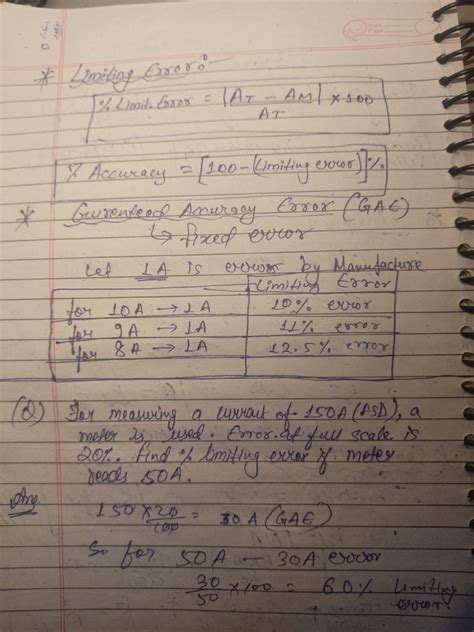 * Limiting Error :-
% Limit. Error = |AT - AM| × 100
AT
% Accuracy = [100 - (Limiting error)] %
* Guranteed Accuracy Error (GAE)
↳ fixed error
Let 1A is error by Manufacture
Limiting Error
for 10A → 1A 10% error
for 9A → 1A 11% error
for 8A → 1A 12.5% error
(Q) For measuring a current of 150A (FSD), a
meter is used. Error at full scale is
20%. find % limiting error if meter
reads 50A.
Ans 150 × 20 = 30A (GAE)
100
So for 50A — 30A error
30 × 100 = 60% Limiting
50 error.